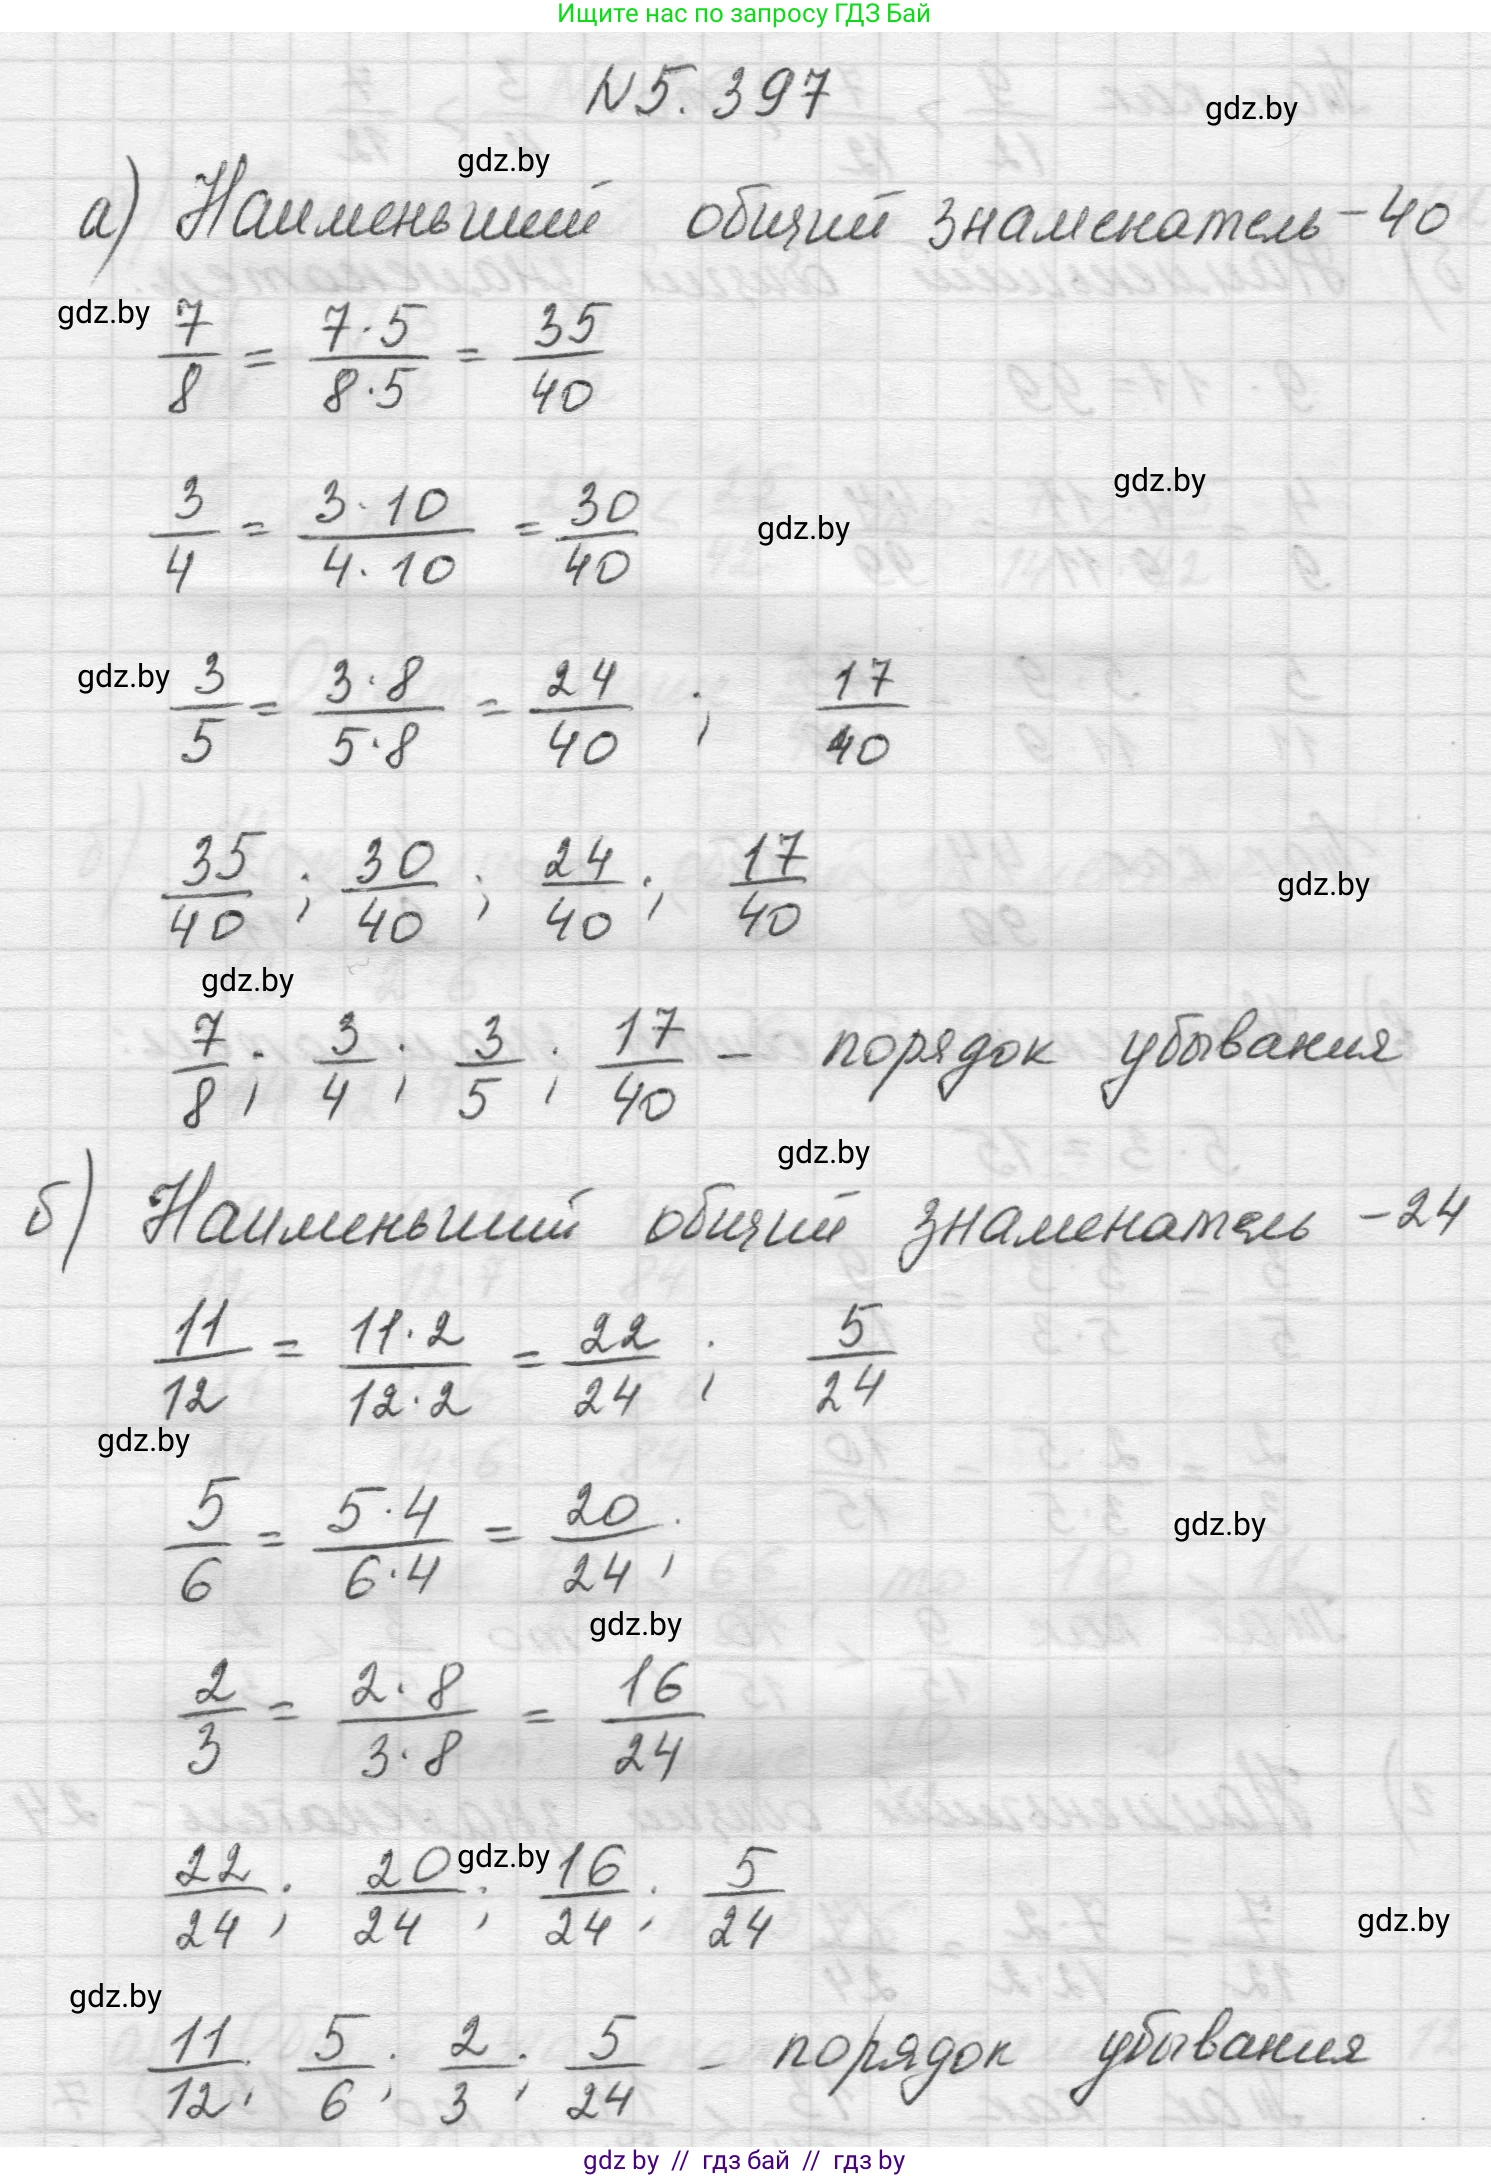 Ищите нас по запросу ГДЗ Бай
N5.397
gdz.by
gdz.by
а) Наименьший общий знаменатель - 40
gdz.by
7/8 = 7·5/8·5 = 35/40
gdz.by
3/4 = 3·10/4·10 = 30/40
gdz.by
gdz.by
3/5 = 3·8/5·8 = 24/40 ; 17/40
35/40 ; 30/40 ; 24/40 ; 17/40
gdz.by
gdz.by
7/8 ; 3/4 ; 3/5 ; 17/40 - порядок убывания
gdz.by
б) Наименьший общий знаменатель - 24
11/12 = 11·2/12·2 = 22/24 ; 5/24
gdz.by
5/6 = 5·4/6·4 = 20/24 ;
gdz.by
gdz.by
2/3 = 2·8/3·8 = 16/24
22/24 ; 20/24 ; 16/24 ; 5/24
gdz.by
gdz.by
gdz.by
11/12 ; 5/6 ; 2/3 ; 5/24 - порядок убывания
gdz by // гдз бай // гдз by